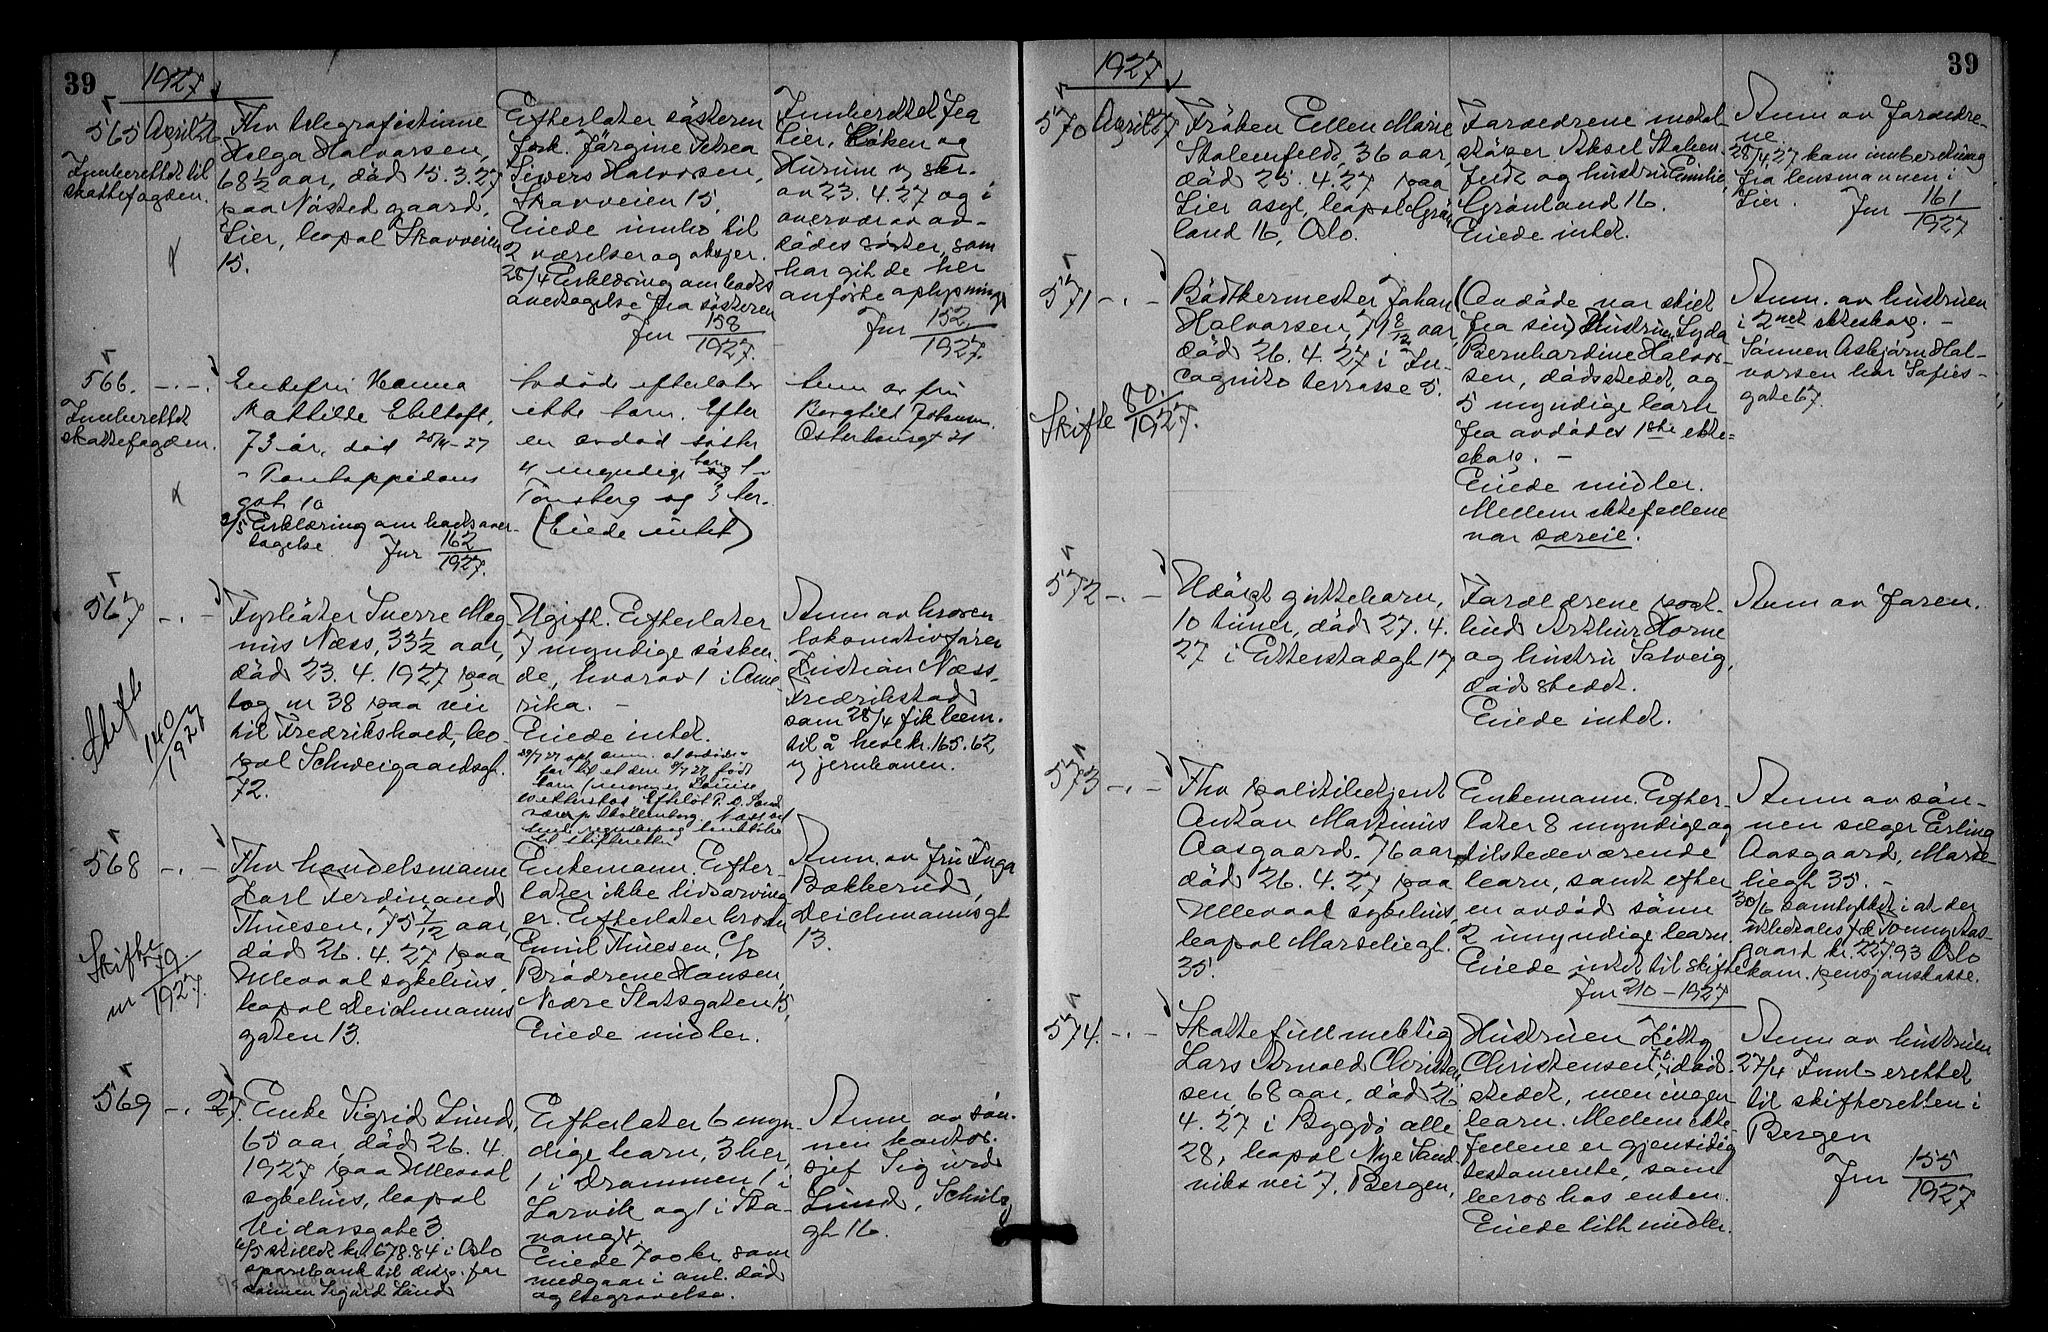 39
1927
565 April 26.
Innberettet til
skattefogden.
Fhv telegrafistinne
Helga Halvorsen,
68 1/2 aar, död 15.3.27
paa Nösted gaard,
Lier, bopæl Skovveien
15.
Efterlater søsteren
frk. Jörgine Petrea
Sivers Halvorsen,
Skovveien 15.
Eiede innbo til
2 værelser og aksjer.
28/4 Erklæring om bods
overtagelse fra søsteren
Jnr 158/1927.
Innberettet fra
Lier, Röken og
Hurum skr.
av 23.4.27 og i
overvær av av-
dödes søster, som
har git de her
anförte oplysninger
Jnr 152/1927.
566. -.-
Innberettet
skattefogden.
Enkefru Hanna
Mathilde Ebeltoft,
73 år, död 25/4-27
Pontoppidans
gate 10
2/5 Erklæring om bods over-
tagelse. Jnr 162/1927.
Avdöd efterlater
ikke barn. Efter
en avdöd söster
4 myndige barn 1 i
Tönsberg og 3 her.
(Eiede intet)
Anm av fru
Borghild Johansen.
Osterhausgt 21
567 -.-
Skifte 140/1927
Fyrböter Sverre Mag-
nus Næss, 33 1/2 aar,
död 23.4.1927 paa
tog nr 38 paa vei
til Fredrikshald, bo-
pæl Schweigaardsgt.
72.
Ugift. Efterlater
7 myndige søsken-
de, hvorav 1 i Ame-
rika. -
Eiede intet.
Anm av broren
lokomotivförer
Kristian Næss,
Fredrikstad
som 28/4 fik bem.
til å heve kr. 165.62
v jernbanen.
568 -.-
Skifte
nr 79/1927.
Fhv handelsmann
Karl Ferdinand
Thuesen, 75 7/12 aar,
död 26.4.27 paa
Ullevaal sykehus,
bopæl Deichmanns
gaten 13.
Enkemann. Efter-
later ikke livsarving-
er. Efterlater broder
Emil Thuesen, C/o
Brödrene Hansen,
Nedre Slotsgaten 15,
Eiede midler.
Anm. av fru Inga
Bakkerud,
Deichmannsgt
13.
569 -. 27.
Enke Sigrid Lund,
65 aar, död 26.4.
1927 paa Ullevaal
sykehus, bopæl
Vidarsgate 3.
6/5 stillet kr 1678.84 i Oslo
sparebank til disp. for
sönnen Sigurd Lund
Efterlater 6 myn-
dige barn, 3 her,
1 i Drammen 1 i
Larvik og 1 i Sta-
vanger.
Eiede 700 kr. som
medgaar i anl. död
og begravelse.
Anm av søn-
nen kontor-
sjef Sigurd
Lund, Schultz
gt 16.
39
1927
570 April 27
Fröken Ellen Marie
Stolenfeldt, 36 aar,
död 25.4.27 paa
Lier asyl, bopæl Grön-
land 16, Oslo.
Forældrene metal-
stöper Aksel Stolen-
feldt og hustru Emilie,
Grönland 16.
Eiede intet.
Anm av forældre-
ne
28/4 27 kom innberetning
fra lensmannen i
Lier. Jnr 161/1927
571 -.-
Skifte 80/1927.
Bödkermester Johan
Halvorsen, 71 8/12 aar,
död 26.4.27 i In-
cognito terrasse 5.
(Avdöde var skilt
fra sin) Hustru Lyda
Bernhardine Halvor-
sen, dödsstedet, og
5 myndige barn
fra avdödes 1ste ekte-
skap. -
Eiede midler.
Mellem ektefellene
var særeie.
Anm. av hustruen
i 2net ekteskap. -
Sönnen Asbjörn Hal-
vorsen bor Sofies-
gate 67.
572 -.-
Udöpt guttebarn,
10 timer, död 27.4.
27 i Etterstadgt 17
Forældrene post-
bud Arthur Horne
og hustru Solveig,
dödsstedet.
Eiede intet.
Anm av faren.
573 -.-
Fhv politibetjent
Anton Martinius
Aasgaard. 76 aar,
död 26.4.27 paa
Ullevaal sykehus,
bopæl Marseliegt.
35.
Enkemann. Efter-
later 8 myndige og
tilstedeværende
barn, samt efter
en avdöd sönn
2 umyndige barn.
Eiede intet til skifte
Jnr 210-1927
Anm av søn-
nen selger Erling
Aasgaard, Marse-
liegt 35. -
30/6 samtykket i at der
utbetales frk Jonny Aas-
gaard kr. 227.93 Oslo
kom. pensjonskasse.
574. -.-
Skattefullmektig
Lars Arnold Christen-
sen, 68 aar, död 26.
4.27 i Bygdö alle
28, bopæl Nye Sand-
viks vei 7, Bergen,
Hustruen Kitty
Christensen, död-
stedet, men ingen
barn. Mellem ekte-
fellene er gjensidig
testamente, som
beror hos enken.
Eiede litt midler.
Anm av hustruen
27/4 Innberettet
til skifteretten i
Bergen
Jnr 155/1927